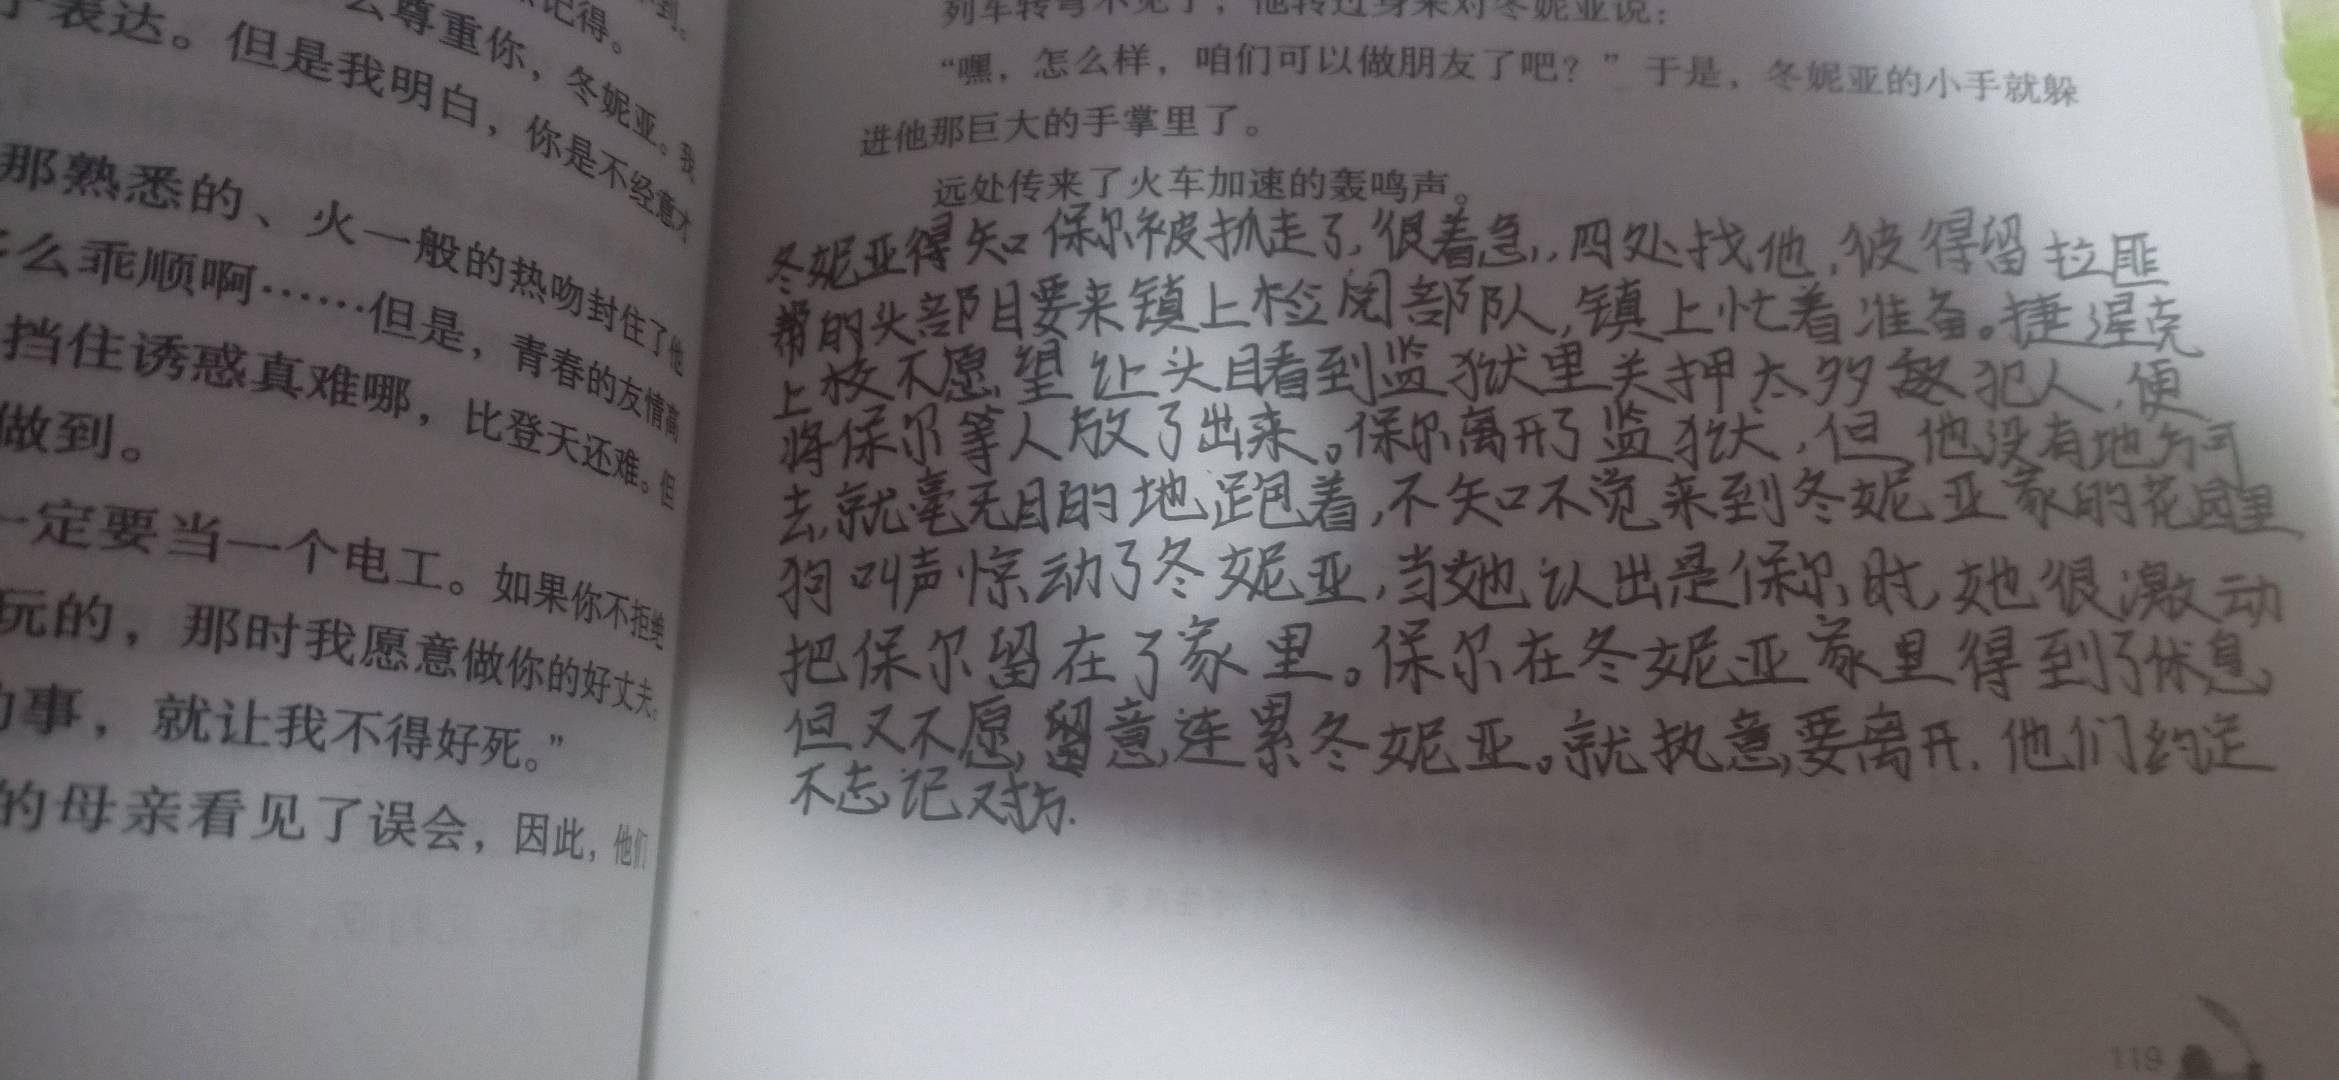 到。
记得。
么尊重你，冬妮亚。我
表达。但是我明白，你是不经意才
那熟悉的、火一般的热吻封住了他
么乖顺啊……但是，青春的友情高
挡住诱惑真难哪，比登天还难。但
做到。
一定要当一个电工。如果你不拒绝
玩的，那时我愿意做你的好丈夫。
事，就让我不得好死。”
的母亲看见了误会，因此，他们
列车转弯不见了，他转过身来对冬妮亚说：
“嘿，怎么样，咱们可以做朋友了吧？”于是，冬妮亚的小手就躲
进他那巨大的手掌里了。
远处传来了火车加速的轰鸣声。
冬妮亚得知保尔被抓走了，很着急，四处找他，彼得留拉匪
帮的头部目要来镇上检阅部队，镇上忙着准备。捷涅克
上校不愿望让头目看到监狱里关押太多犯人，便
将保尔等人放了出来。保尔离开了监狱，但他没有地方可
去，就毫无目的地跑着，不知不觉来到冬妮亚家的花园里，
狗叫声惊动了冬妮亚，当她认出是保尔时，她很激动
把保尔留在了家里。保尔在冬妮亚家里得到了休息，
但又不愿留意连累冬妮亚。就执意要离开.他们约定
不忘记对方.
119